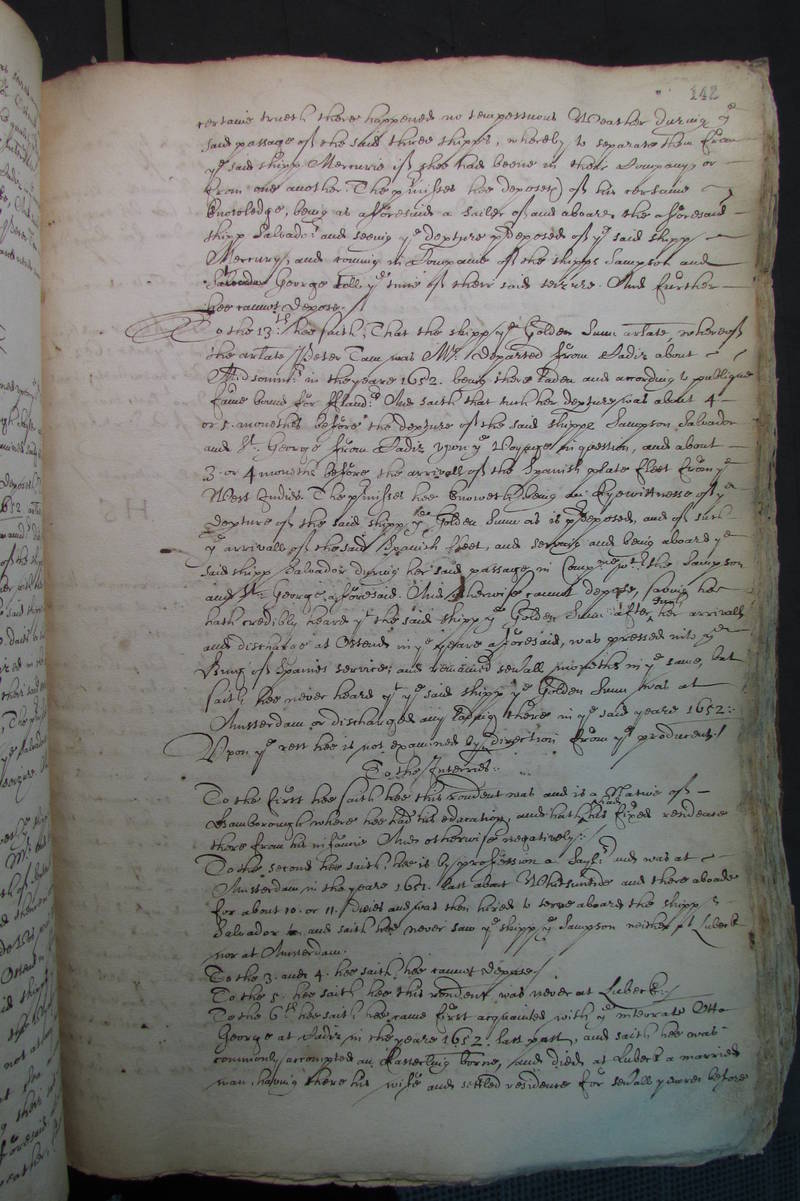 142
certaine trueth there happened no tempestuous Weather during ye
said passage of the said three shipps, whereby to separate them from
ye said shipp Mercurie if shee had beene in their Company, or
from one another. The pmisses hee deposeth of his certaine
knowledge, being as aforesaid a sailer of and aboard the aforesaid
shipp Salvador and seeing ye depture pdeposed of ye said shipp
Mercury, and coming in Companie of the shipps Sampson and
George till ye time of their said seizure. And further
hee cannot depose./
To the 13th hee saith, That the shipp ye Golden Sunn arlate, whereof
the arlate Peter Tam was Mr. departed from Cadiz about
Midsommr in the yeare 1652. being there laden and according to publique
fame bound for Flandrs And saith that such her depture was about 4
or 5 moneths before the depture of the said shipps Sampson Salvador
and St. George from Cadiz upon ye Voyage in question, and about
3. or 4 moneths before the arrivall of the Spanish plate fleet from ye
West Indies. The pmisses hee knoweth being an Eyewittnesse of ye
depture of the said shipp ye Golden Sunn as is pdeposed, and of such
ye arrivall of the said Spanish fleet, and serving and being aboard ye
said shipp Salvador during her said passage in Company of the Sampson
and St. George aforesaid. And otherwise cannot depose, saving hee
hath credibly heard yt the said shipp ye Golden Sunn after her arrivall
and discharge at Ostend in ye yeare aforesaid, was pressed into ye
King of Spaines service, and remained sevall moneths in ye same, but
saith hee never heard yt ye said shipp ye Golden Sunn was at
Amsterdam or discharged any lading there in ye said yeare 1652:
Upon ye rest hee is not examined by direction from ye producent./
To the Interries:
To the first hee saith hee this rendent was and is a Native of
Hamborough where hee had his education, and hath had his fixed residence
there from his infancie And otherwise negatively:/
To the second hee saith, hee is by profession a Saylr and was at
Amsterdam in the yeare 1651. last about Whitsuntide and there aboade
for about 10. or 11. daies and was then hired to serve aboard the shipp
Salvador and saith hee never saw ye shipp ye Sampson neither at Lubeck
nor at Amsterdam.
To the 3. and 4. hee saith hee cannot depose/
To the 5. hee saith hee this rendent was never at Lubeck:/
To the 6th hee saith hee came first acquainted with ye interrate Otto
George at Cadiz in the yeare 1652. last past, and saith hee was
commonly accompted an Easterling borne, and died at Lubeck a married
man, having there his wife and settled residence for sevall yeares before